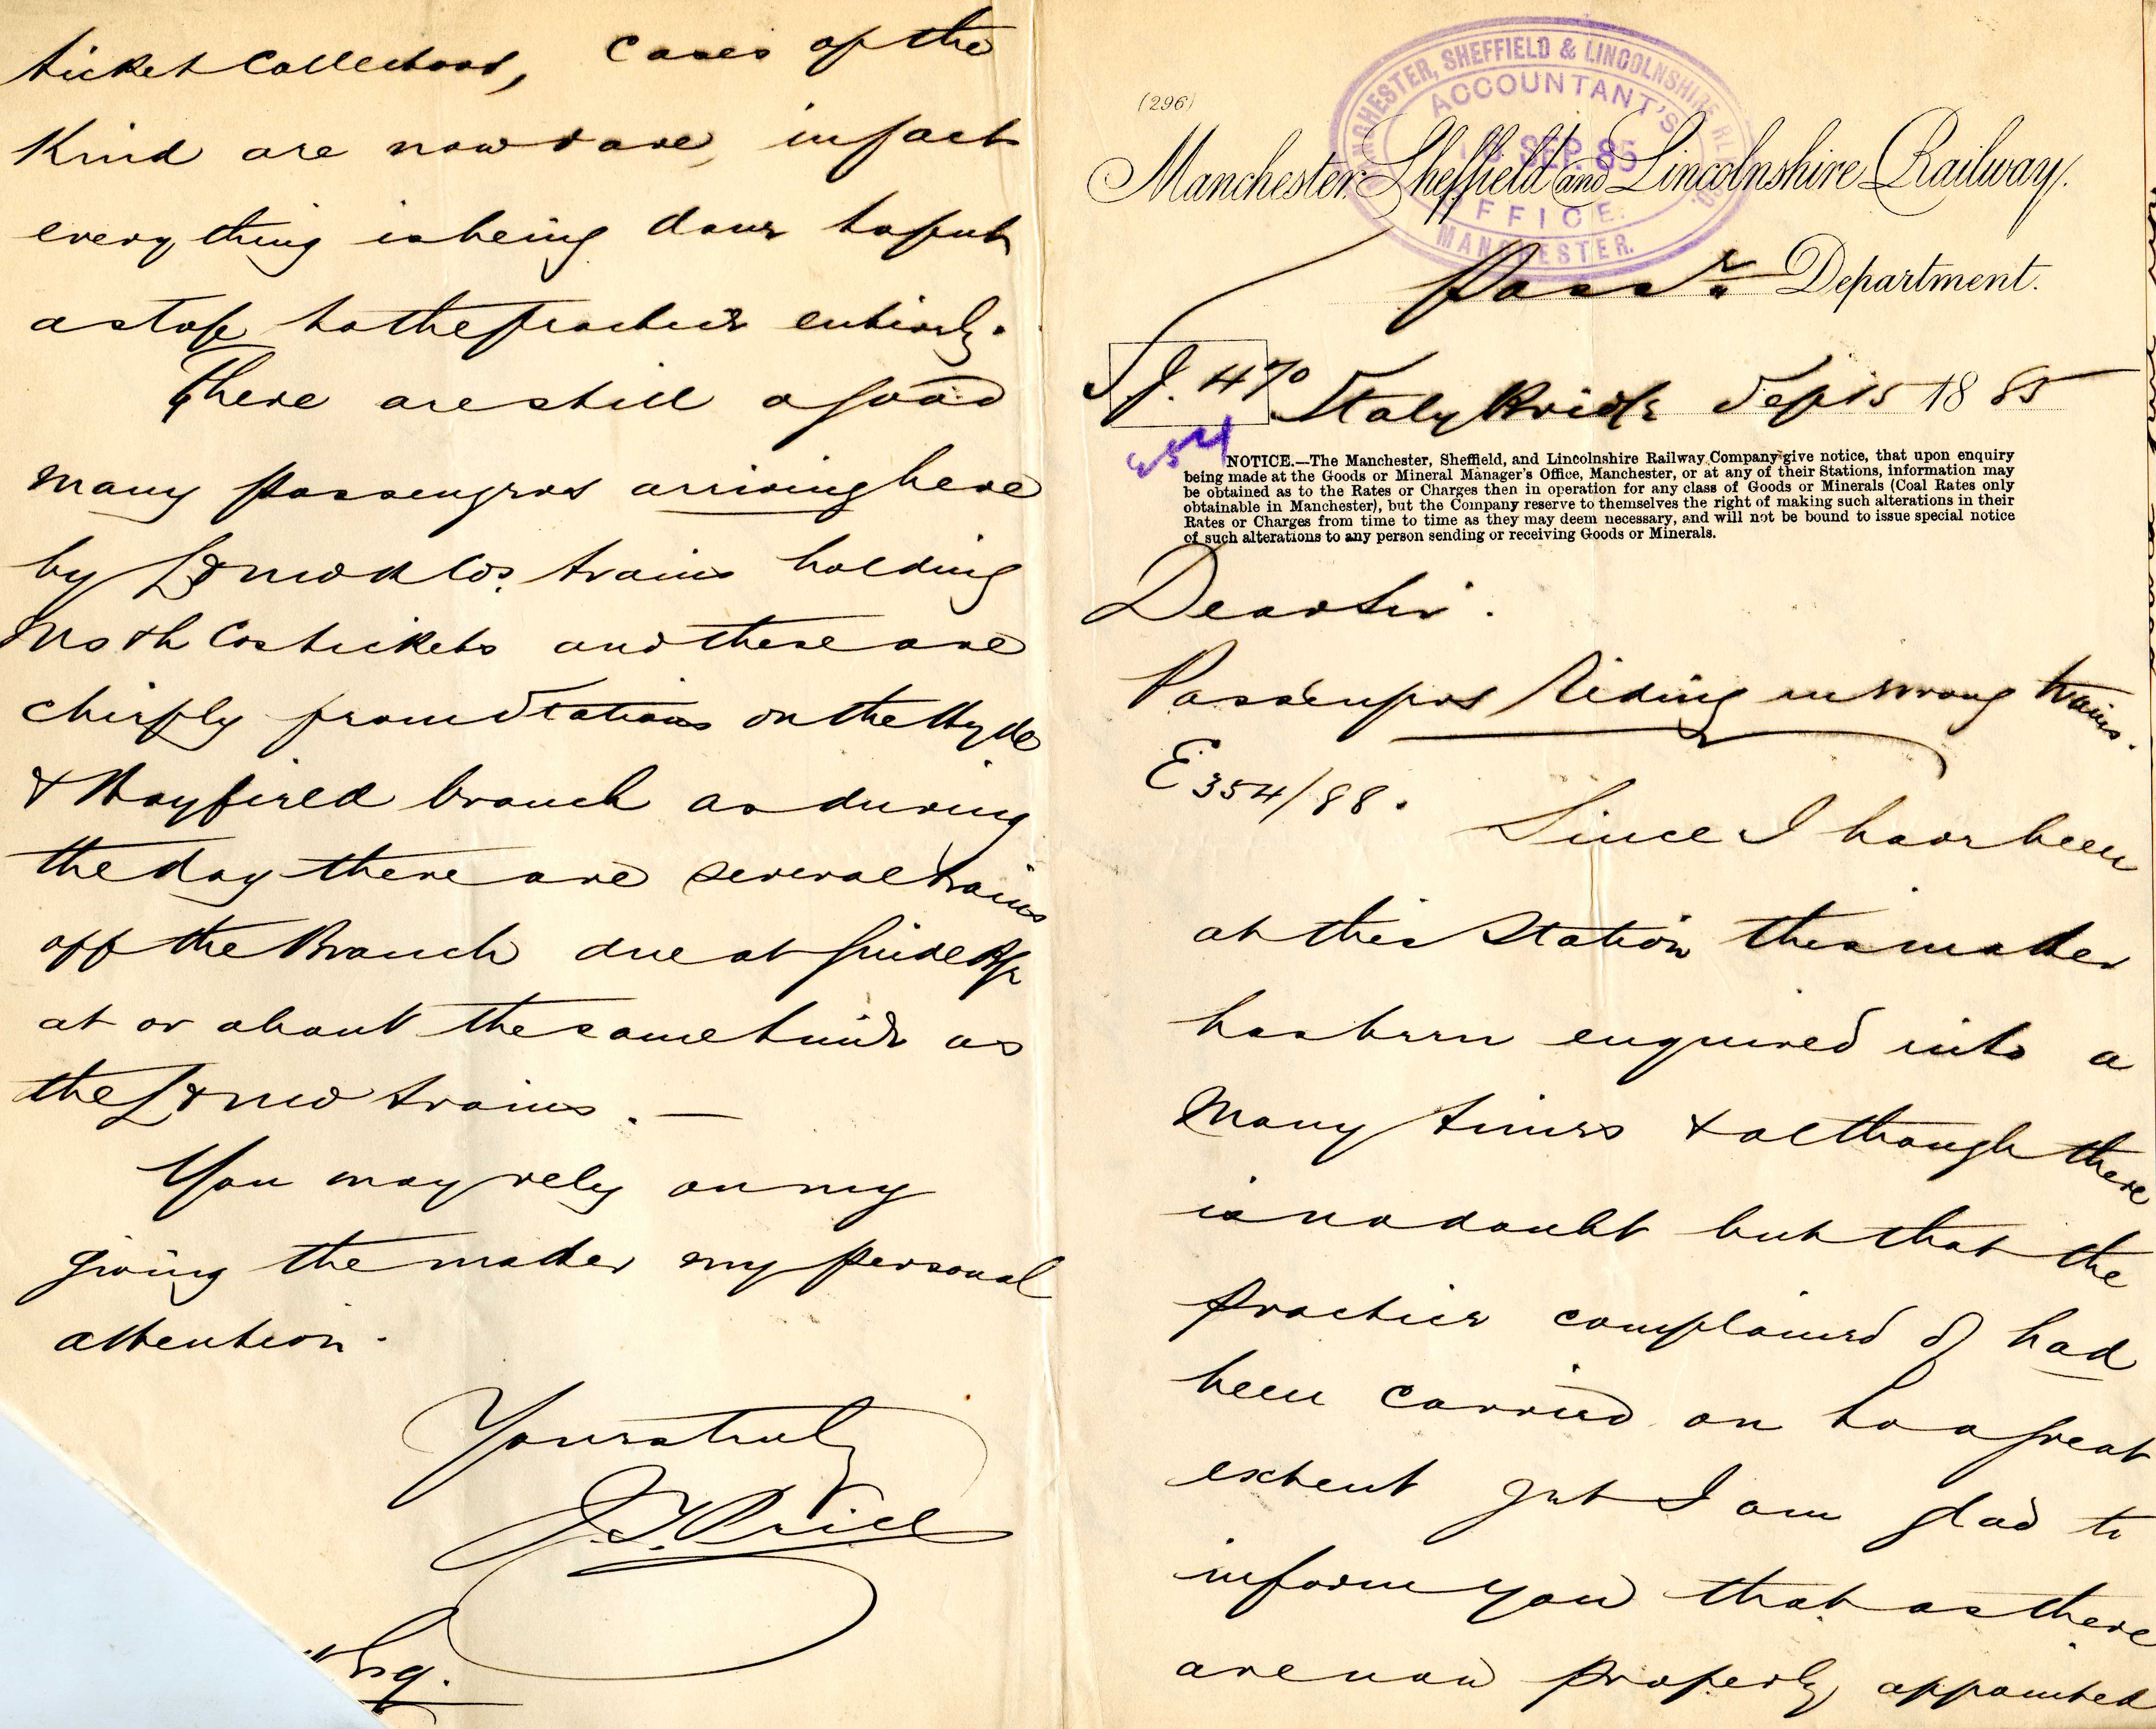 (296)
MANCHESTER, SHEFFIELD & LINCOLNSHIRE RLY. CO.
ACCOUNTANT'S
SEP. 85
OFFICE.
MANCHESTER.
Manchester Sheffield and Lincolnshire Railway.
Passr. Department.
470 Stalybridge Sep 15 1885
354
NOTICE.—The Manchester, Sheffield, and Lincolnshire Railway Company give notice, that upon enquiry
being made at the Goods or Mineral Manager's Office, Manchester, or at any of their Stations, information may
be obtained as to the Rates or Charges then in operation for any class of Goods or Minerals (Coal Rates only
obtainable in Manchester), but the Company reserve to themselves the right of making such alterations in their
Rates or Charges from time to time as they may deem necessary, and will not be bound to issue special notice
of such alterations to any person sending or receiving Goods or Minerals.
Dear Sir.
Passengers riding in wrong trains.
E 354/88.
Since I have been
at this Station this matter
has been enquired into a
many times & although there
is no doubt but that the
practice complained of had
been carried on to a great
extent yet I am glad to
inform you that as there
are now properly appointed
ticket collectors, cases of the
kind are now rare, in fact
everything is being done to put
a stop to the practice entirely.
There are still a good
many passengers arriving here
by L&NW R Cos. trains holding
MS&L Cos tickets and these are
chiefly from Stations on the Hyde
& Hayfield branch as during
the day there are several trains
off the Branch due at Guide Bge
at or about the same time as
the L&NW trains. —
You may rely on my
giving the matter my personal
attention.
Yours truly
J.T. Price
Esq.